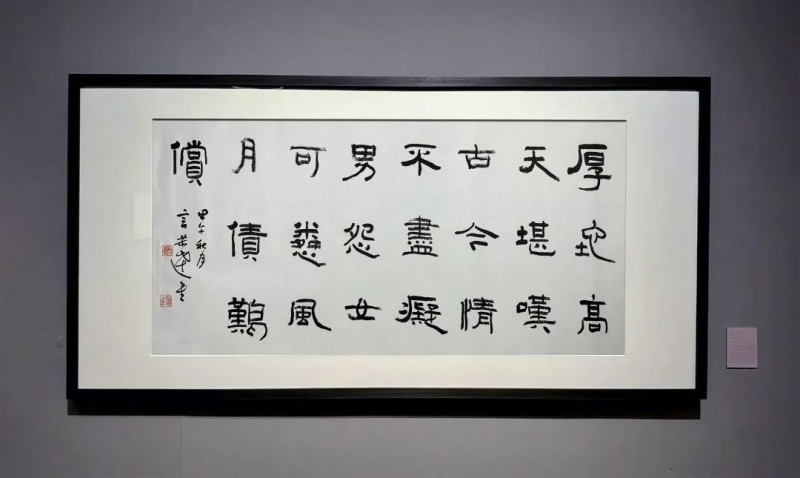 厚地高
天堪嘆
古今情
不盡癡
男怨女
可憐風
月債難
償
甲午秋月
言恭達書